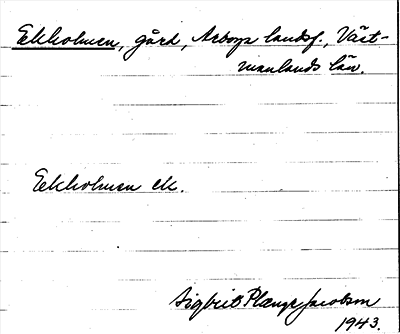 Ekholmen, gård, Arboga landsf., Väst-
manlands län.
Eekholmen ek.
Sigbrit Plænge Jacobson
1943.